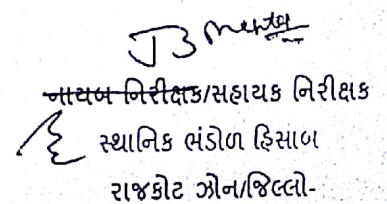 JB Mehta
નાયબ નિરીક્ષક/સહાયક નિરીક્ષક
સ્થાનિક ભંડોળ હિસાબ
રાજકોટ ઝોન/જિલ્લો-